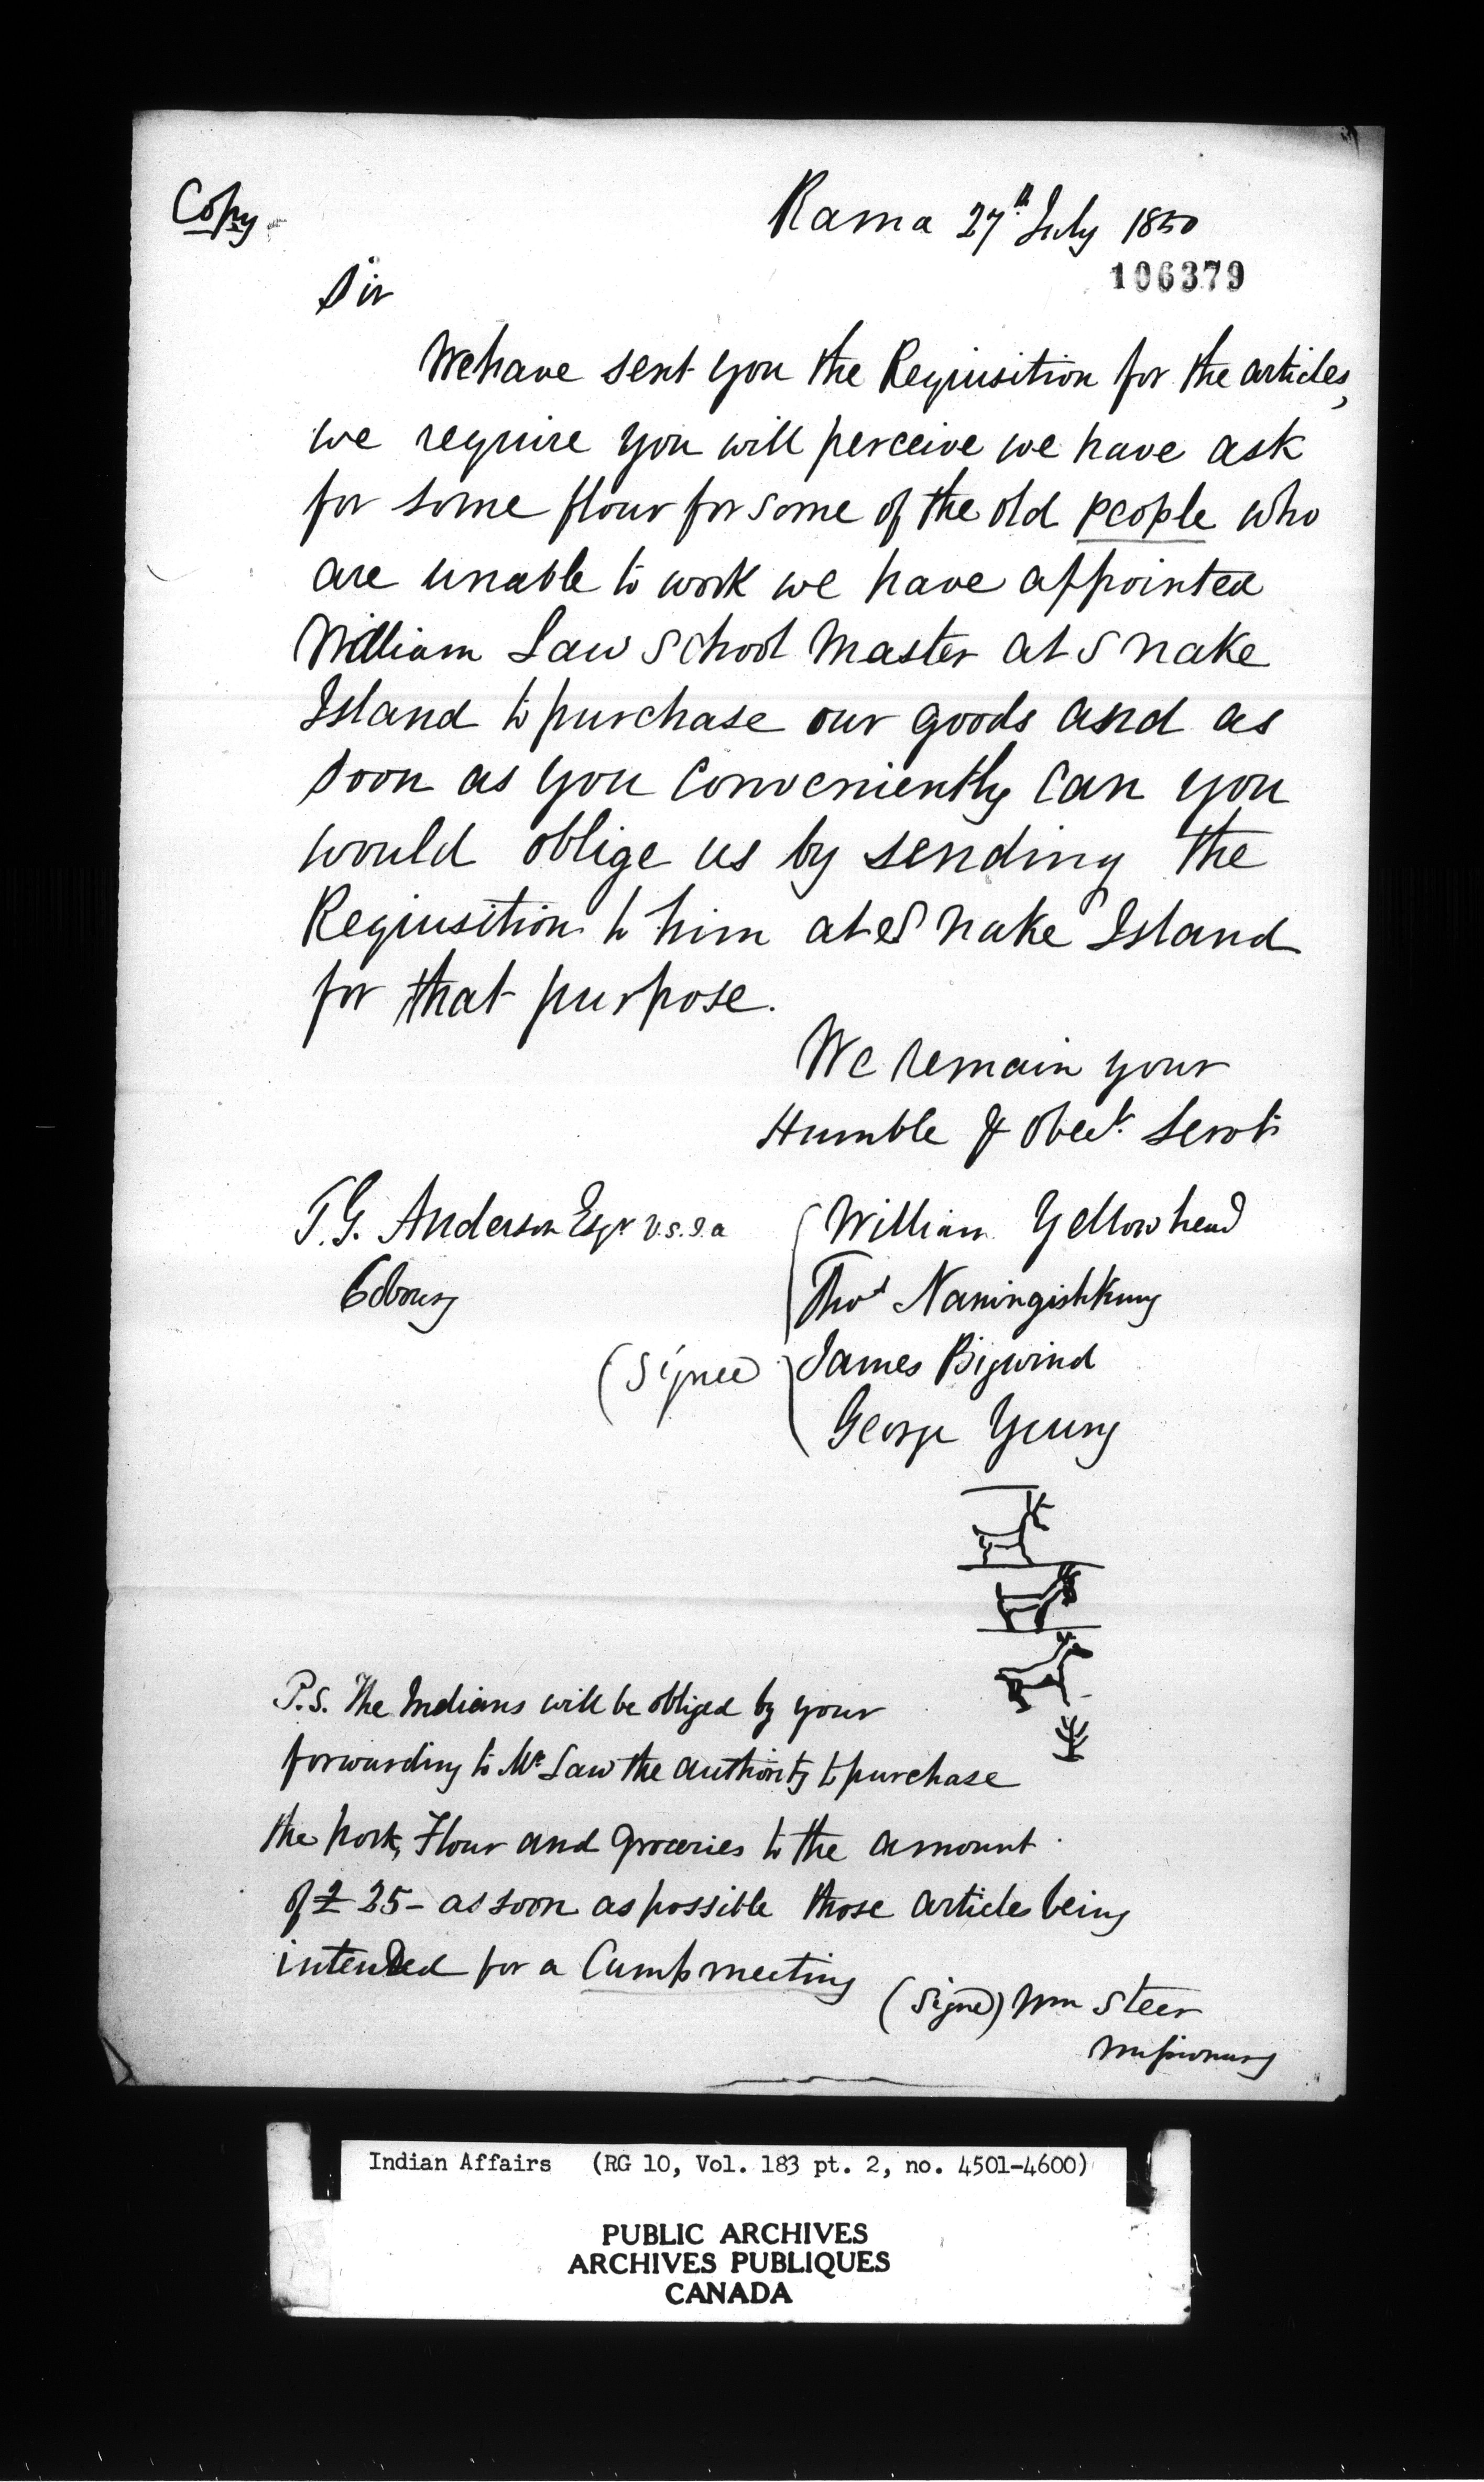 Copy
Rama 27th July 1850
106379
Sir
We have sent you the Requisition for the articles,
we require you will perceive we have ask
for some flour for some of the old people who
are unable to work we have appointed
William Law School Master at Snake
Island to purchase our goods and as
soon as you conveniently can you
would oblige us by sending the
Requisition to him at Snake Island
for that purpose.
We remain your
Humble & Obedt. Servts
T.G. Anderson Esqr V.S.I.a
Cobourg
William Yellowhead
Thos Naningishkung
(Signed) James Bigwind
George Young
P.S. The Indians will be obliged by your
forwarding to Mr. Law the authority to purchase
the pork, Flour and Groceries to the amount
of £ 25- as soon as possible those articles being
intended for a Camp meeting
(Signed) Wm Steer
Missionary
Indian Affairs (RG 10, Vol. 183 pt. 2, no. 4501-4600)
PUBLIC ARCHIVES
ARCHIVES PUBLIQUES
CANADA